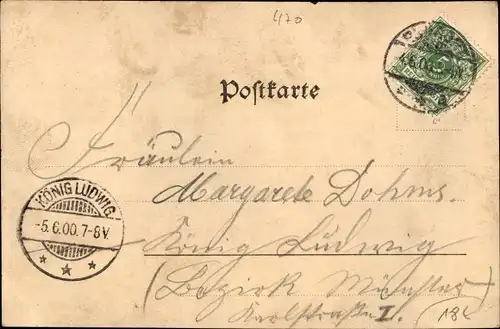 470
Postkarte
Fräulein
Margarete Dohms.
König Ludwig
(Bezirk Münster)
Karlstraße I.
18c
KÖNIG LUDWIG
-5.6.00.7-8V